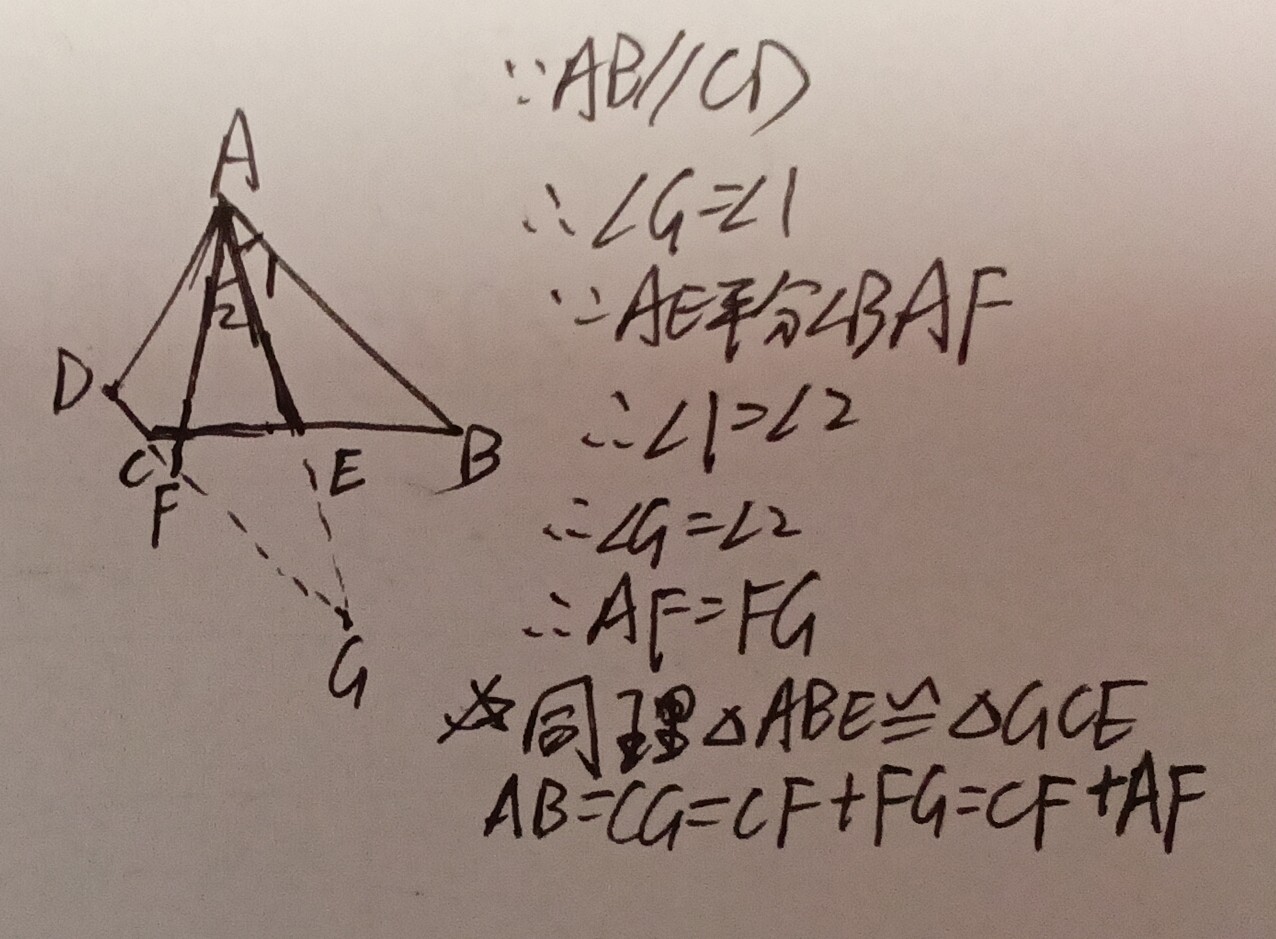 A
1
2
D
C
F
E
B
G
∵AB//CD
∴∠G=∠1
∵AE平分∠BAF
∴∠1=∠2
∴∠G=∠2
∴AF=FG
同理△ABE≌△GCE
AB=CG=CF+FG=CF+AF